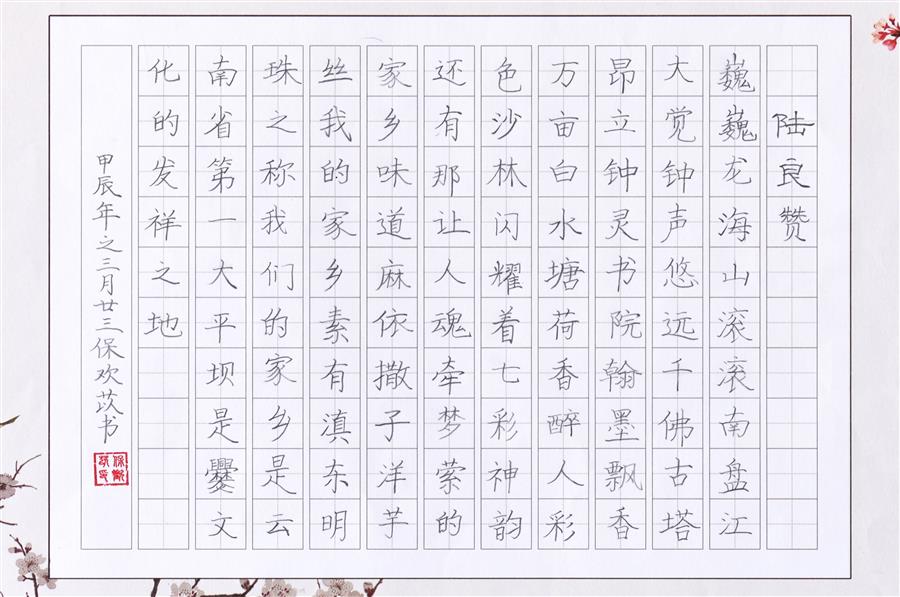 陆良赞
巍巍龙海山滚滚南盘江
大觉钟声悠远千佛古塔
昂立钟灵书院翰墨飘香
万亩白水塘荷香醉人彩
色沙林闪耀着七彩神韵
还有那让人魂牵梦萦的
家乡味道麻依撒子洋芋
丝我的家乡素有滇东明
珠之称我们的家乡是云
南省第一大平坝是爨文
化的发祥之地
甲辰年之三月廿三保欢苡书